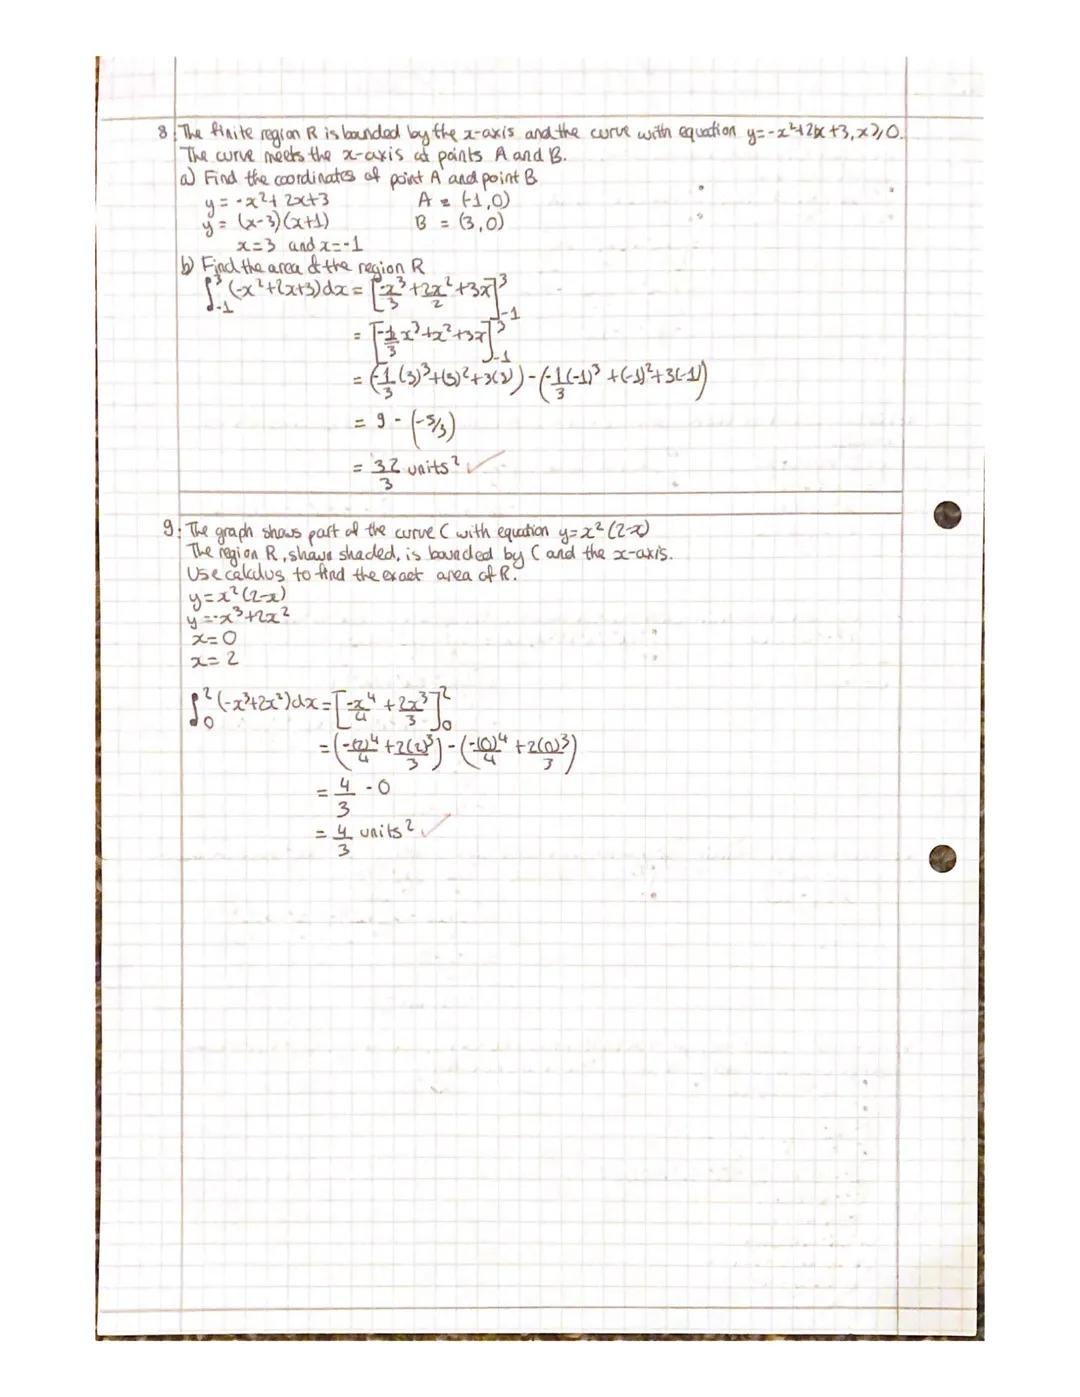 8. The finite region R is bounded by the x-axis and the curve with equation y=-x²+2x+3, x≥0.
The curve meets the x-axis at points A and B.
a) Find the coordinates of point A and point B
y = -x²+ 2x+3 A = (-1,0)
y = (x-3)(x+1) B = (3,0)
x=3 and x=-1
b) Find the area of the region R
∫₋₁³ (-x²+2x+3)dx = [-x³/3 + 2x²/2 + 3x]₋₁³
= [-1/3 x³+x²+3x]₋₁³
= (-1/3 (3)³+(3)²+3(3)) - (-1/3 (-1)³ + (-1)²+3(-1))
= 9 - (-5/3)
= 32/3 units² ✓
9. The graph shows part of the curve C with equation y=x²(2-x)
The region R, shown shaded, is bounded by C and the x-axis.
Use calculus to find the exact area of R.
y=x²(2-x)
y=-x³+2x²
x=0
x=2
∫₀² (-x³+2x²)dx = [-x⁴/4 + 2x³/3]₀²
= (-(2)⁴/4 + 2(2)³/3) - (-(0)⁴/4 + 2(0)³/3)
= 4/3 - 0
= 4/3 units² ✓